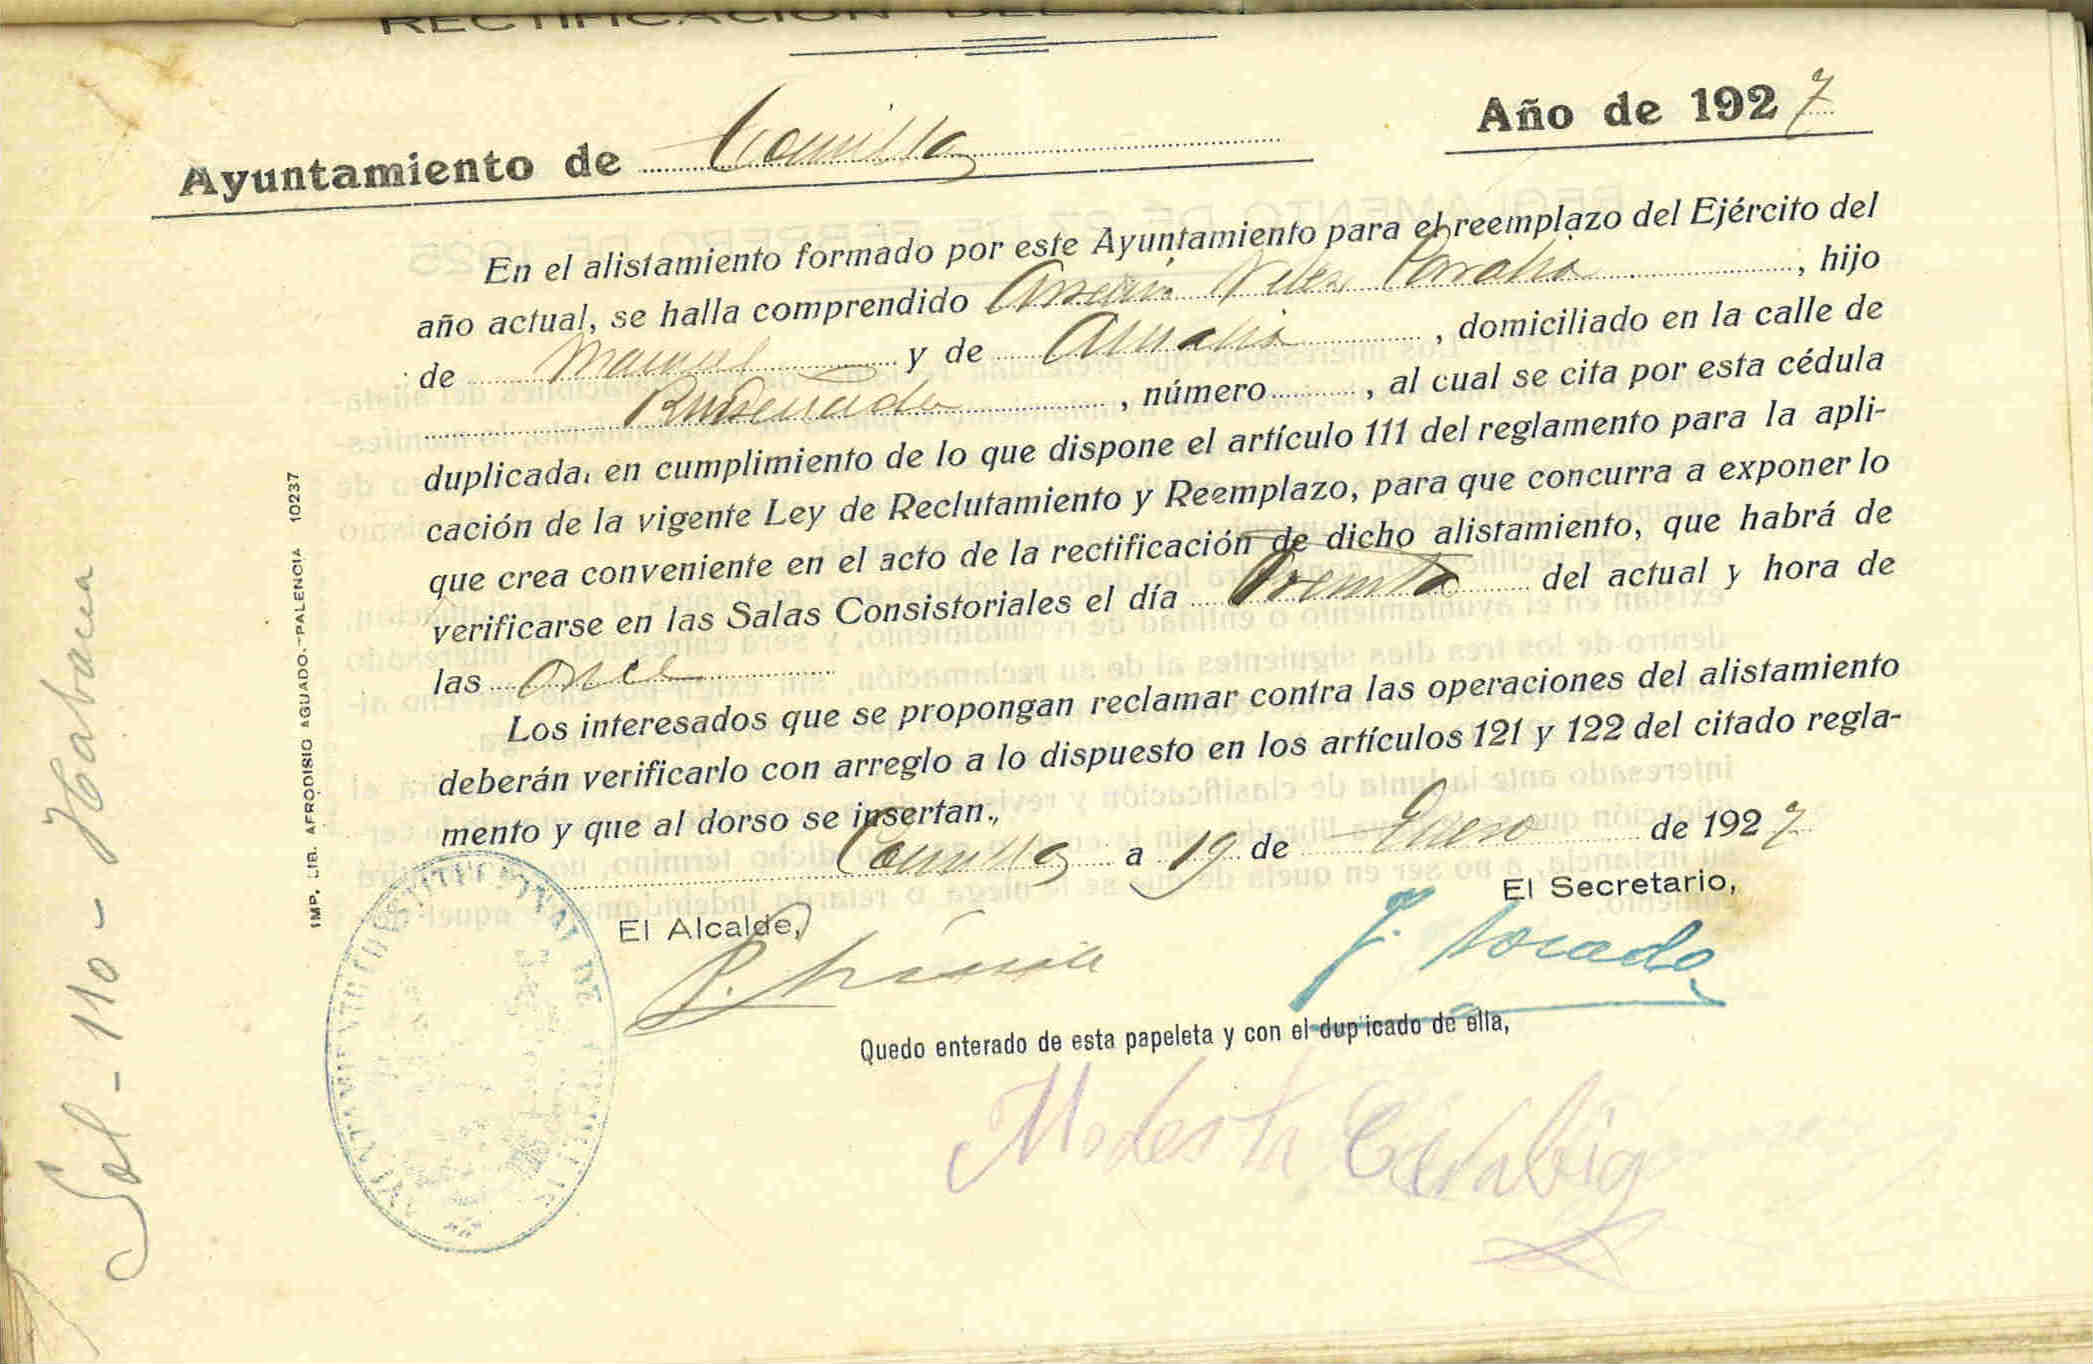 Año de 1927
Ayuntamiento de Comillas
En el alistamiento formado por este Ayuntamiento para el reemplazo del Ejército del
año actual, se halla comprendido , hijo
de Manuel y de Amalia , domiciliado en la calle de
Ruiseñada , número , al cual se cita por esta cédula
duplicada, en cumplimiento de lo que dispone el artículo 111 del reglamento para la apli-
cación de la vigente Ley de Reclutamiento y Reemplazo, para que concurra a exponer lo
que crea conveniente en el acto de la rectificación de dicho alistamiento, que habrá de
verificarse en las Salas Consistoriales el día treinta del actual y hora de
las once
Los interesados que se propongan reclamar contra las operaciones del alistamiento
deberán verificarlo con arreglo a lo dispuesto en los artículos 121 y 122 del citado regla-
mento y que al dorso se insertan.
Comillas a 19 de Enero de 1927
El Alcalde, El Secretario,
Quedo enterado de esta papeleta y con el dup icado de ella,
Modesta
IMP. LIB. AFRODISIO AGUADO.-PALENCIA 10237
Sol - 110 - Habana